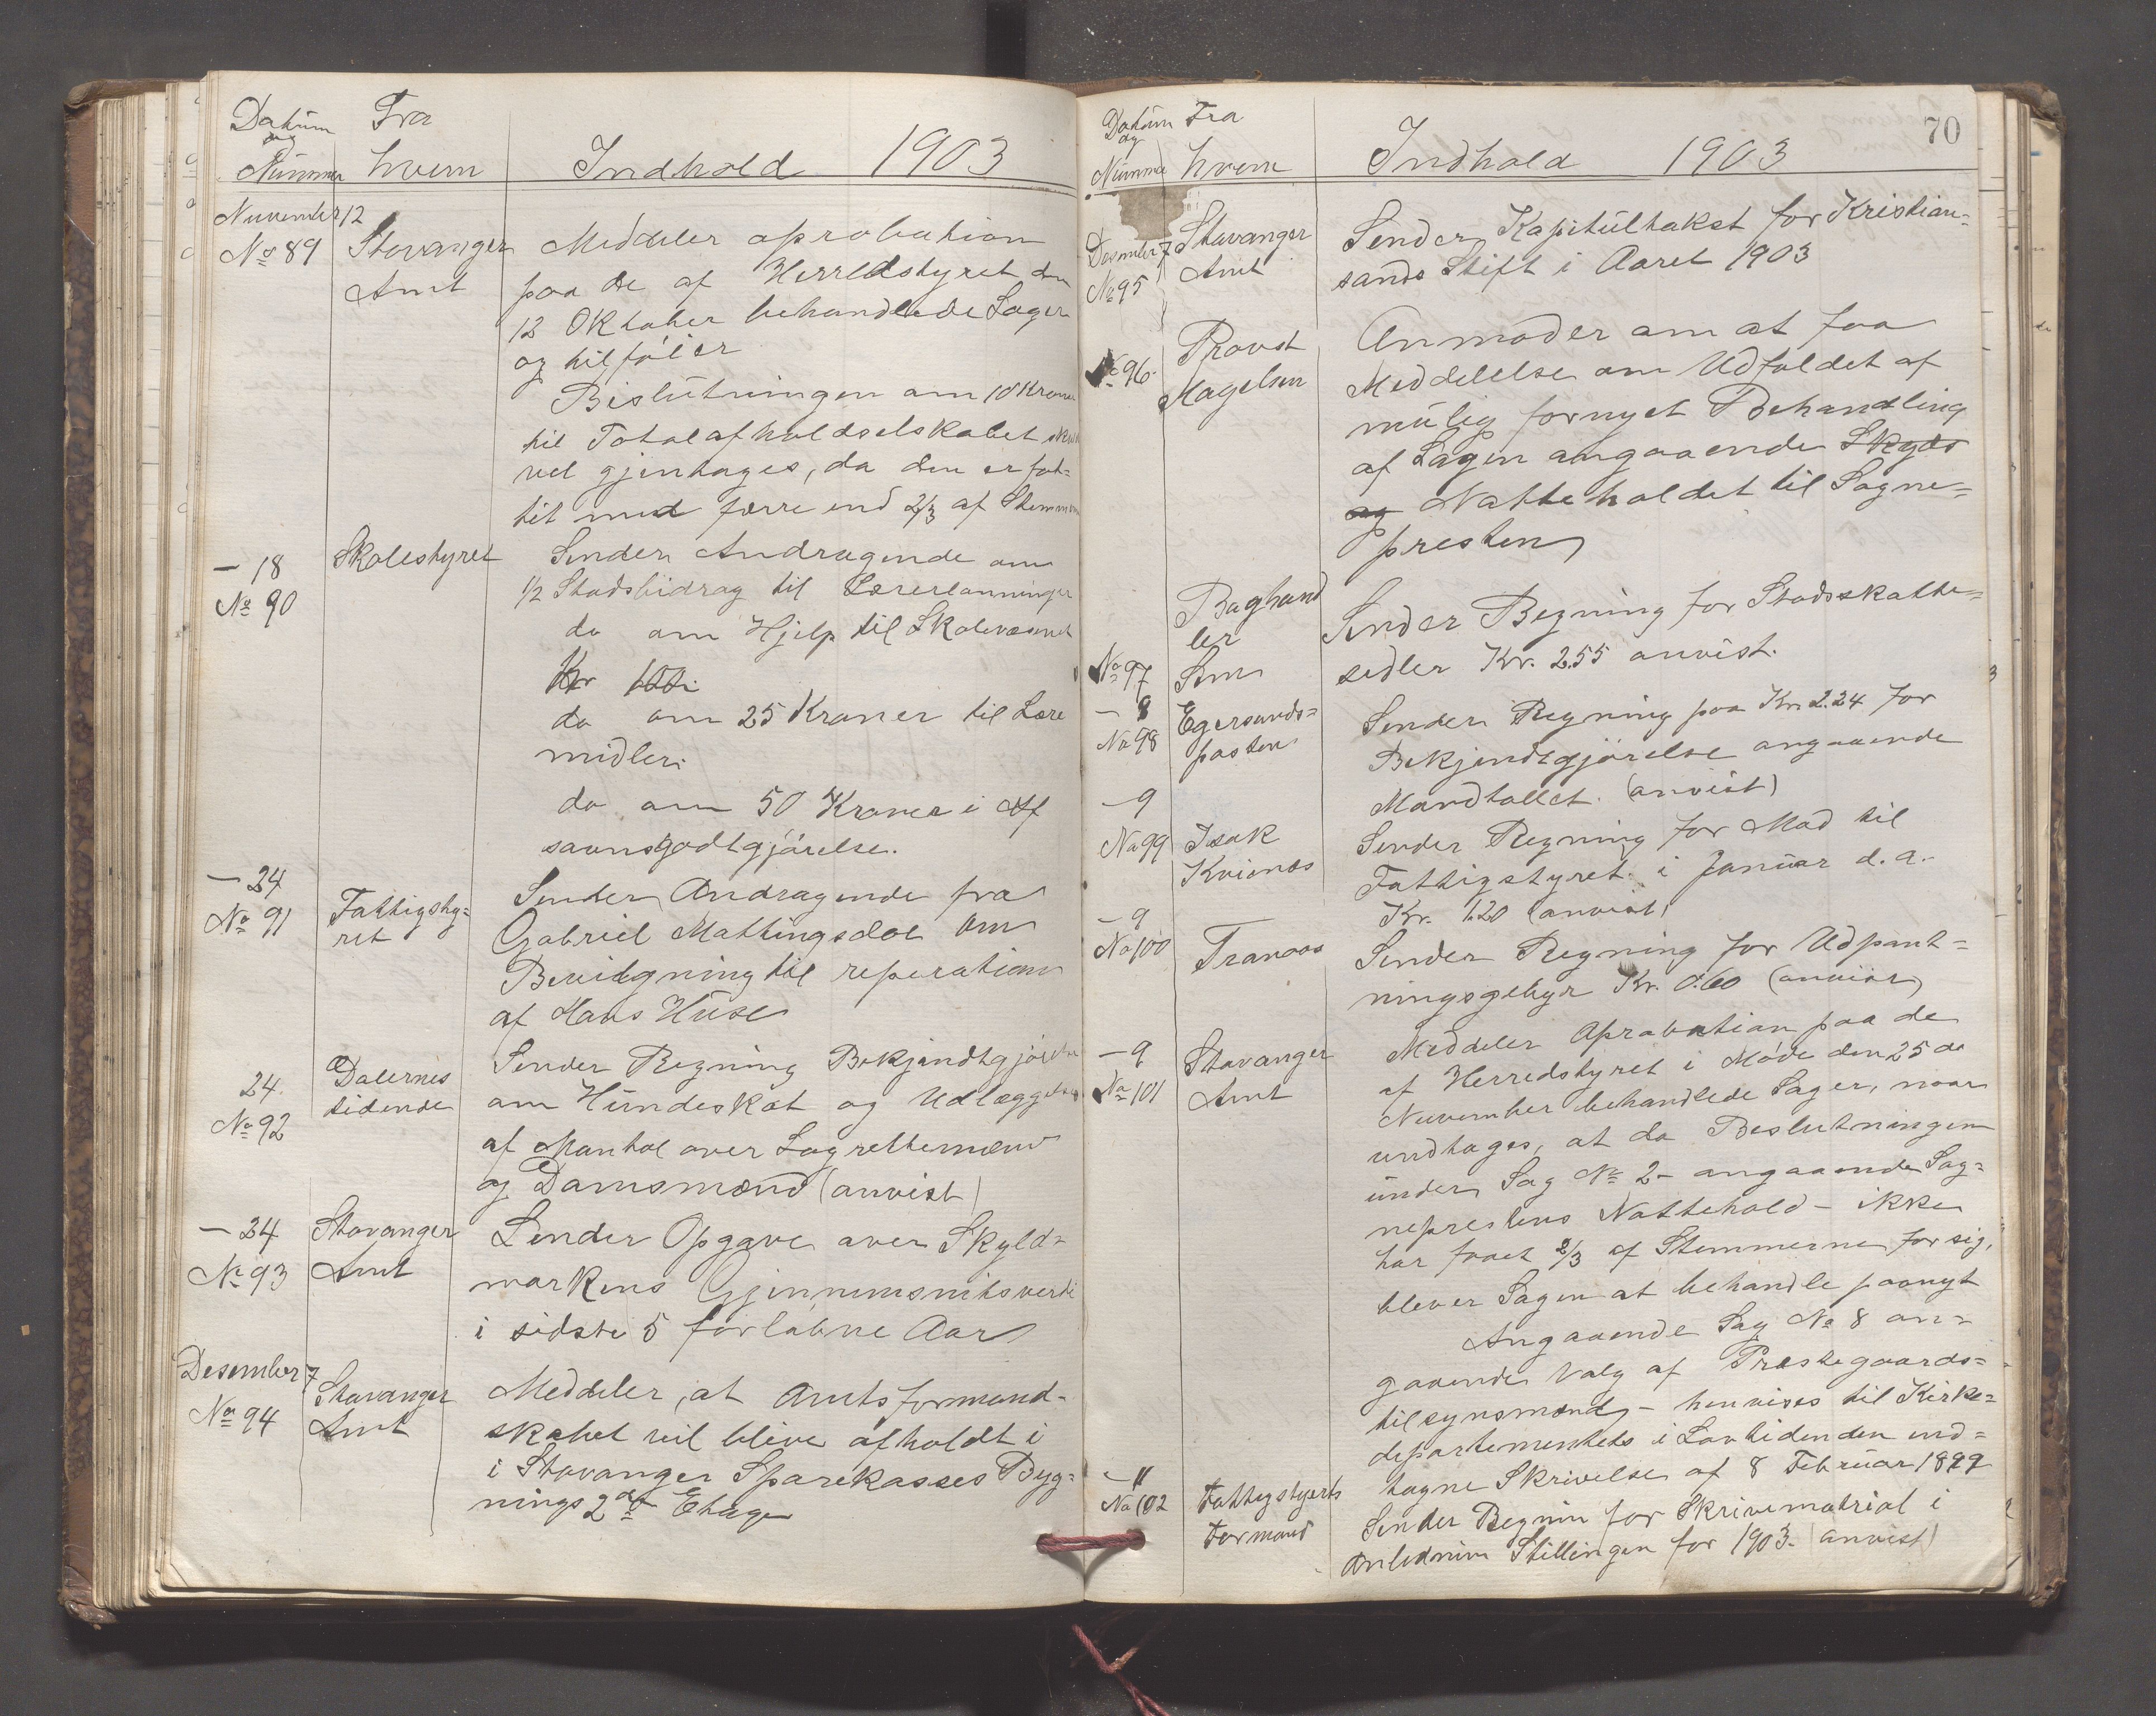 Datum Fra
og
Nummer hvem Indhold 1903
November 12
No 89 Stavanger Meddeler aprobation
Amt paa de af Herredstyret den
12 Oktober behandlede Sager
og tilføier
Beslutningen om 10 Kroner
til Totalafholdselskabet
vel gjentages, da den er fat-
tet med færre end 2/3 af Stemmerne
- 18 Skolestyret Sender Andragende om
No 90 1/2 Stadsbidrag til Lærerlønninger
do om Hjelp til Skolevæsenet
Kr
do om 25 Kroner til Lære
midler.
do om 50 Kroner i Af
savnsgodtgjørelse.
- 24 Sender Andragende fra
No 91 Fattigsty= Gabriel Mattingsdal om
ret Bevilgning til reperation
af Hans Huse
Dalernes Sender Regning Bekjendtgjørelse
24. tidende om Hundeskat og Udlæggelse
No 92
af Mantal over Lagrettemænd
og Domsmænd (anvist)
- 24 Stavanger Sender Opgave over Skyld=
No 93 Amt markens Gjennemsnitsverdi
i sidste 5 forløbne Aar
Desember 7
Stavanger Meddeler, at Amtsformand-
No 94 Amt skabet vil blive afholdt i
i Stavanger Sparekasses Byg=
nings 2den Etage
70
Datum Fra
og
Nummer hvem Indhold 1903
Stavanger Sender Kapitültakst for Kristian=
Desember 7 Amt sands Stift i Aaret 1903
No 95
Provst Anmoder om at faa
No 96. Magelsen Meddelelse om Udfaldet af
mulig fornyet Behandling
af Sagen angaaende Skyds
og Natteholdet til Sogne=
presten
Boghand Sender Regning for Stadsskatte=
ler
No 97 sedler Kr. 2.55 anvist.
- 8 Egersunds= Sender Regning paa Kr. 2.24 for
No 98 posten Bekjendtgjørelse angaaende
- 9 Mandtallet. (anvist)
No 99 Isak Sender Regning for Mad til
Kvienes Fattigstyret i Januar d.a.
- 9 Kr. 1.20 (anvist)
No 100 Tranaas Sender Regning for Udpant=
ningsgebyr Kr. 0.60 (anvist)
- 9 Stavanger Meddeler Aprobation paa de
No 101 Amt af Herredstyret i Møde den 25de
November behandlede Sager, naar
undtages, at da Beslutningen
under Sag No 2 - angaaende Sog=
neprestens Nattehold - ikke
har faaet 2/3 af Stemmerne for sig,
blever Sagen at behandle paanyt
Angaaende Sag No 8 an=
gaaende Valg af Prestegaards=
tilsynsmænd - henvises til Kirke=
departementets i Lovtidenden ind=
- 11 tagne Skrivelse af 8 Februar 1899
No 102 Fattigstyrets Sender Regnin for Skrivematrial i
Formand Anlednin Stillingen for 1903. (anvist)